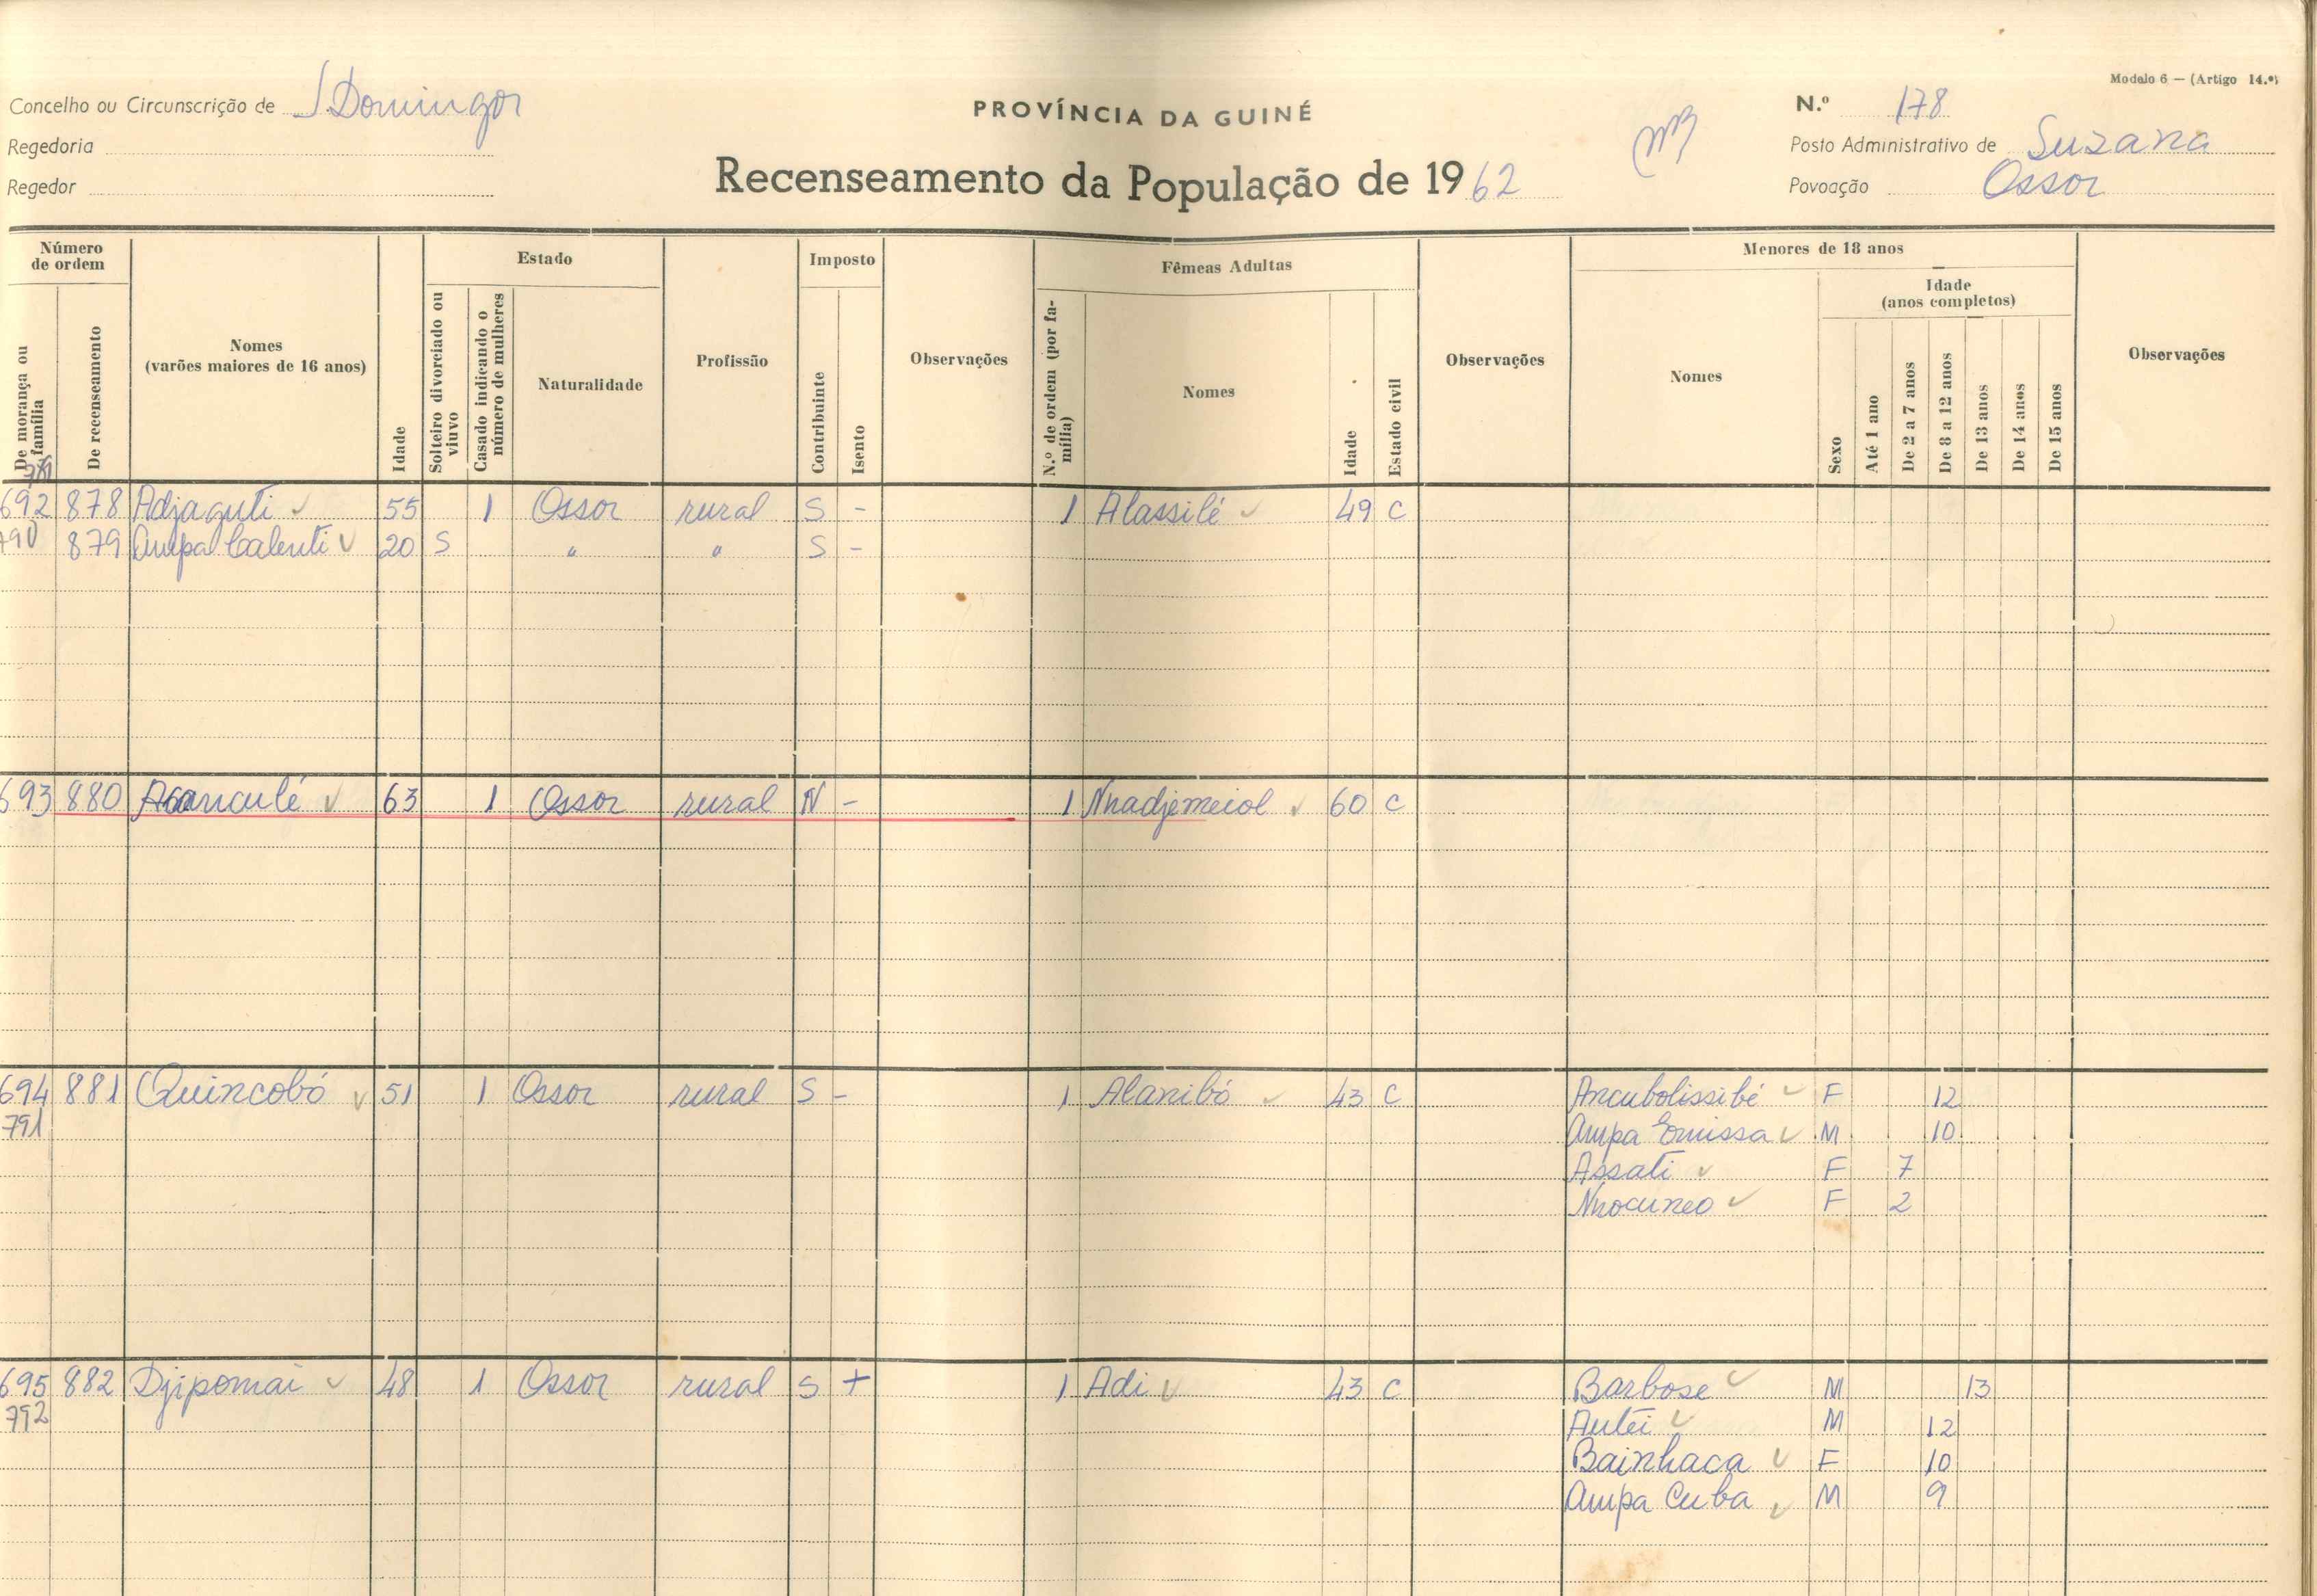 Modelo 6 — (Artigo 14.º)
Concelho ou Circunscrição de S. Domingos
PROVÍNCIA DA GUINÉ
N.º 178
Regedoria
Posto Administrativo de Suzana
Regedor
Recenseamento da População de 1962
Povoação Ossor
Número de ordem
Estado
Imposto
Fêmeas Adultas
Menores de 18 anos
Idade (anos completos)
De morança ou família
De recenseamento
Nomes (varões maiores de 16 anos)
Idade
Solteiro divorciado ou viuvo
Casado indicando o número de mulheres
Naturalidade
Profissão
Contribuinte
Isento
Observações
N.º de ordem (por família)
Nomes
Idade
Estado civil
Observações
Nomes
Sexo
Até 1 ano
De 2 a 7 anos
De 8 a 12 anos
De 13 anos
De 14 anos
De 15 anos
Observações
692 878 Adjaguti 55 1 Ossor rural S - 1 Alassilé 49 C
790 879 Ampa Calenti 20 S " " S -
693 880 Acanculé 63 1 Ossor rural N - 1 Nhadjemeiol 60 C
694 881 Quincobó 51 1 Ossor rural S - 1 Alanibó 43 C Ancubolissibé F 12
791 Ampa Emissa M 10
Assati F 7
Nhocuneo F 2
695 882 Djipomai 48 1 Ossor rural S + 1 Adi 43 C Barbose M 13
792 Autei M 12
Bainhaca F 10
Ampa Cuba M 9